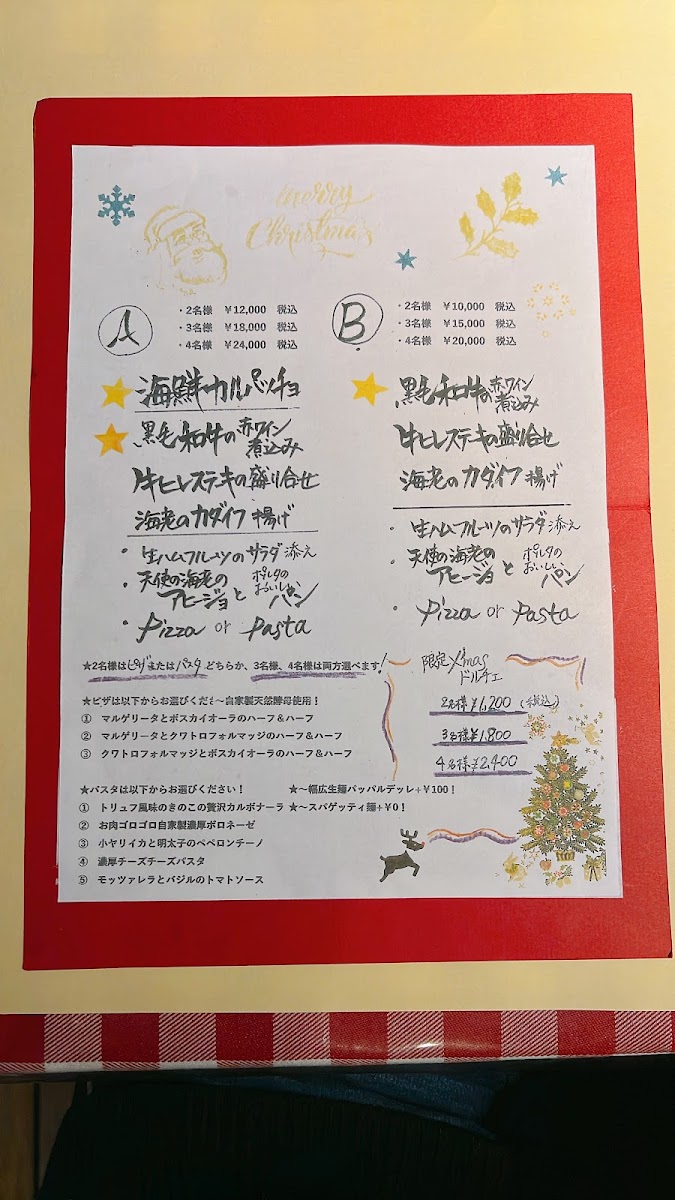 merry
Christmas
A
・2名様 ¥12,000 税込
・3名様 ¥18,000 税込
・4名様 ¥24,000 税込
海鮮カルパッチョ
黒毛和牛の赤ワイン煮込み
牛ヒレステキの盛り合せ
海老のカダイフ揚げ
・生ハムフルーツのサラダ添え
・天使の海老のアヒージョとポルタのおいしいパン
・Pizza or Pasta
B
・2名様 ¥10,000 税込
・3名様 ¥15,000 税込
・4名様 ¥20,000 税込
黒毛和牛の赤ワイン煮込み
牛ヒレステキの盛り合せ
海老のカダイフ揚げ
・生ハムフルーツのサラダ添え
・天使の海老のアヒージョとポルタのおいしいパン
・Pizza or Pasta
★2名様はピザまたはパスタ どちらか、3名様、4名様は両方選べます!
★ピザは以下からお選びくださ～自家製天然酵母使用！
① マルゲリータとボスカイオーラのハーフ＆ハーフ
② マルゲリータとクワトロフォルマッジのハーフ＆ハーフ
③ クワトロフォルマッジとボスカイオーラのハーフ＆ハーフ
限定X'mas
ドルチェ
2名様 ¥1,200 (税込)
3名様 ¥1,800
4名様 ¥2,400
★パスタは以下からお選びください！ ★～幅広生麺パッパルデッレ+¥100！
① トリュフ風味のきのこの贅沢カルボナーラ ★～スパゲッティ麺+¥0！
② お肉ゴロゴロ自家製濃厚ボロネーゼ
③ 小ヤリイカと明太子のペペロンチーノ
④ 濃厚チーズチーズパスタ
⑤ モッツァレラとバジルのトマトソース